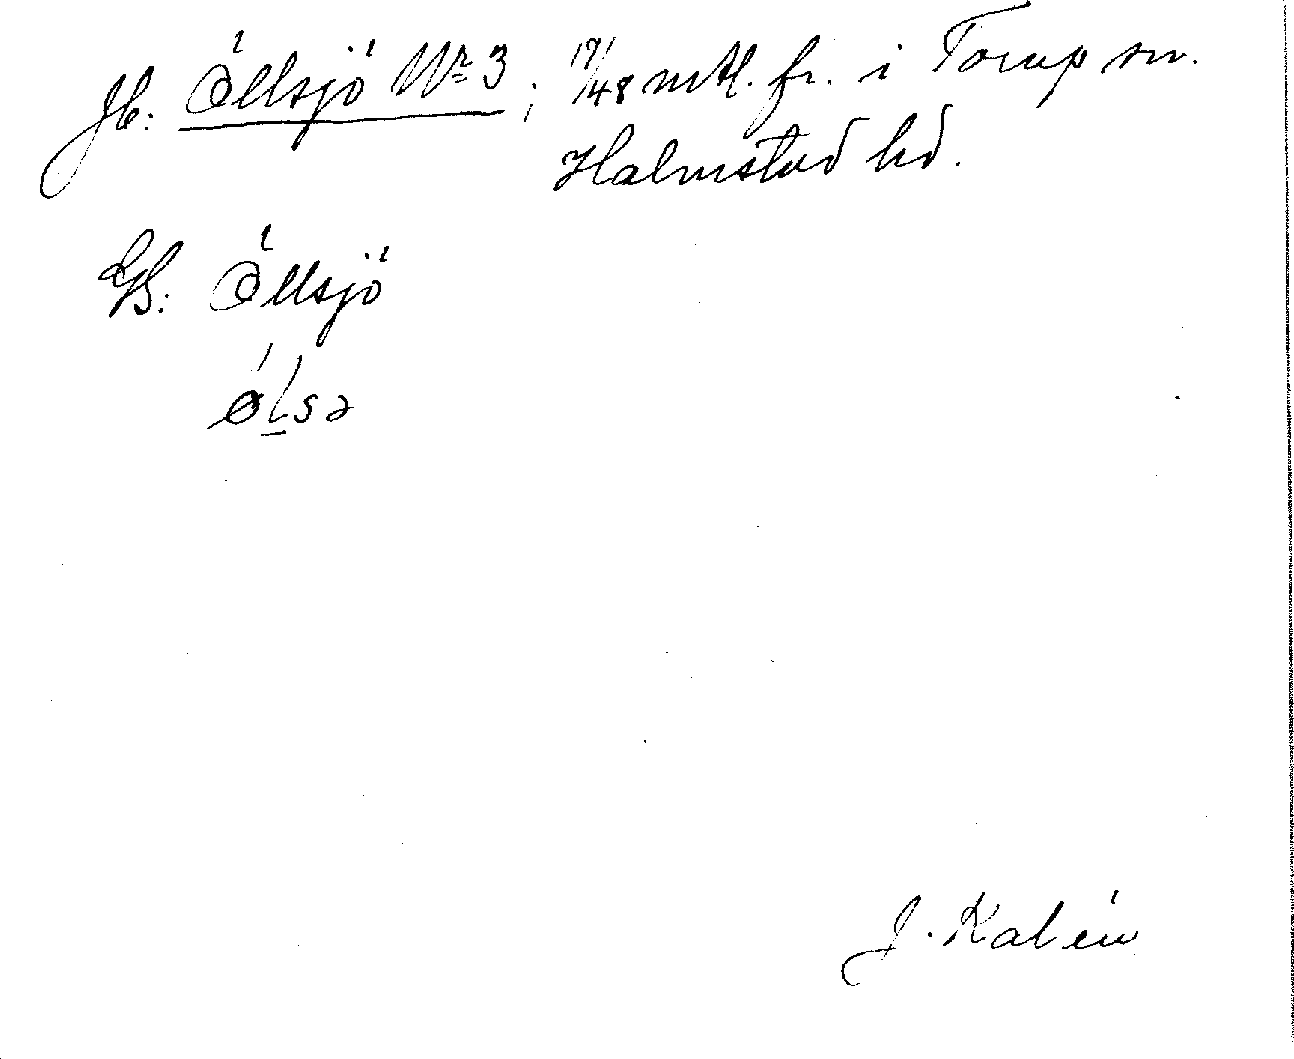 Jb: Öllsjö Nr 3; 17/48 mtl. fr. i Torup sn.
Halmstad hd.
GB: Öllsjö
ø̀Lsə
J. Kalén